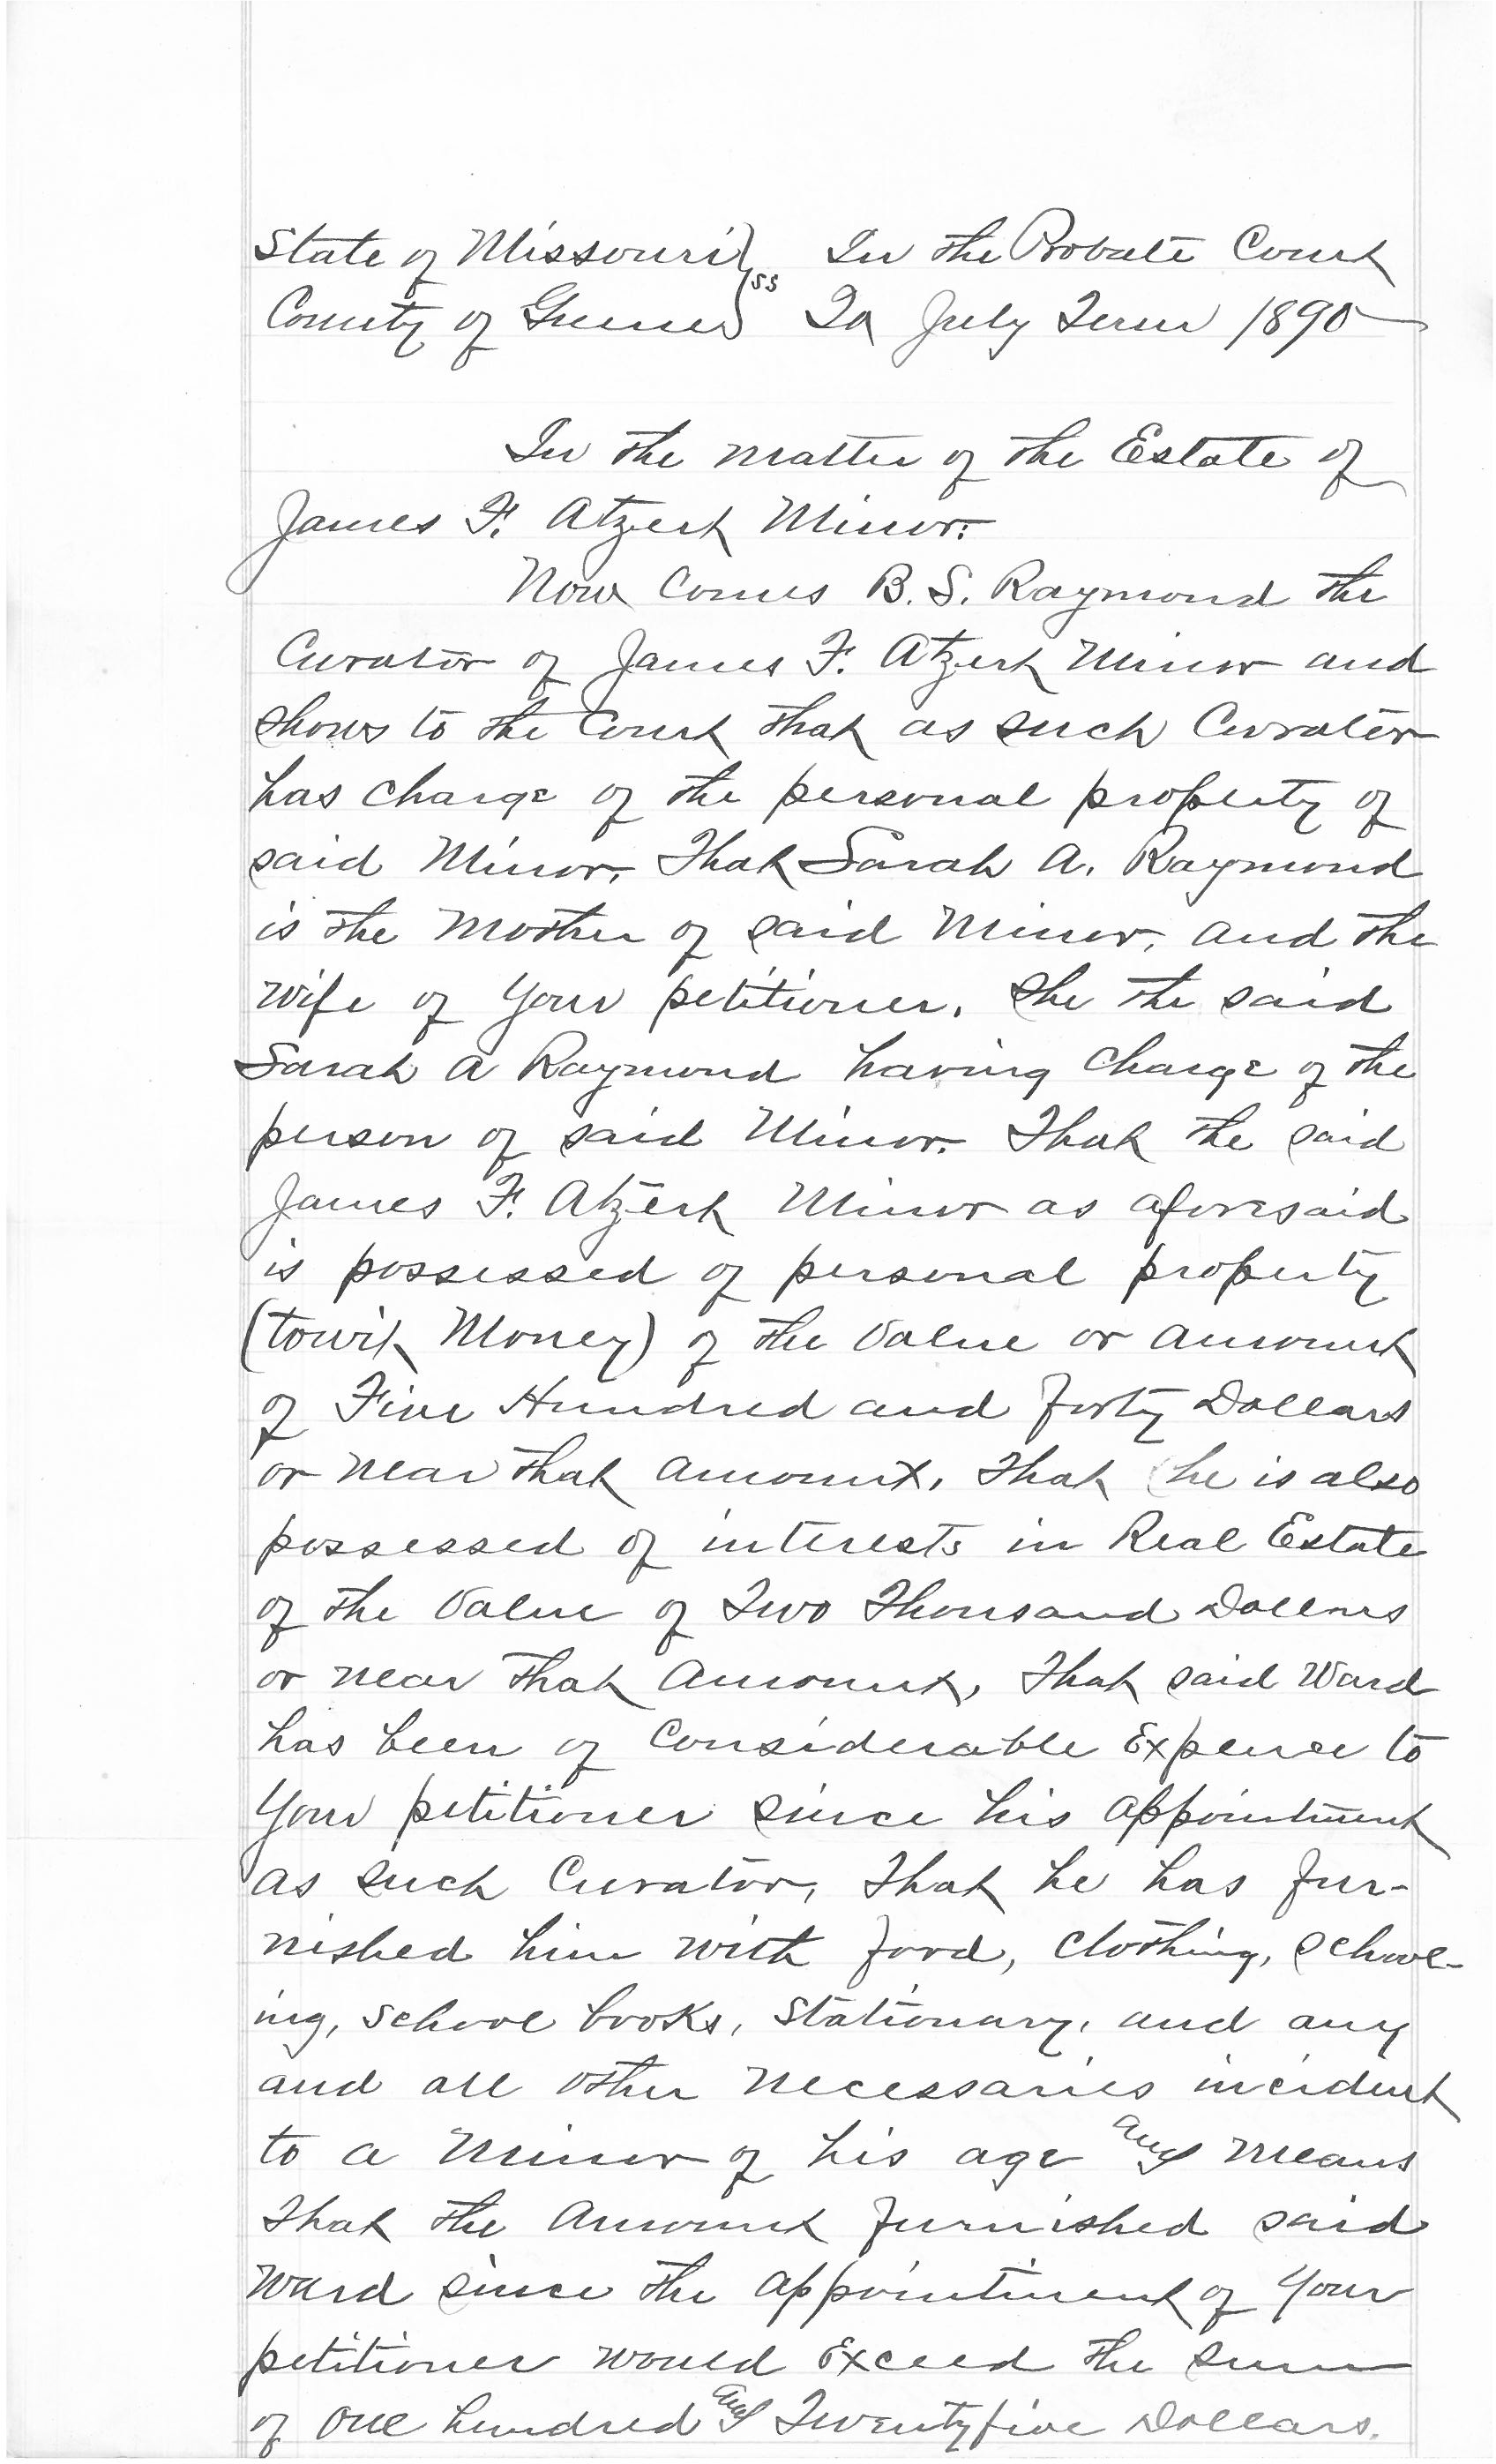 State of Missouri } ss In the Probate Court
County of Greene } To July Term 1890
In the matter of the Estate of
James F. Atzert Minor.
Now Comes B. S. Raymond the
Curator of James F. Atzert Minor and
shows to the Court that as such Curator
has charge of the personal property of
said Minor, That Sarah A. Raymond
is the Mother of said Minor, and the
wife of your petitioner. She the said
Sarah A Raymond having charge of the
person of said Minor. That the said
James F. Atzert Minor as aforesaid
is possessed of personal property
(towit Money) of the Value or amount
of Five Hundred and forty Dollars
or near that amount, that he is also
possessed of interests in Real Estate
of the Value of Two Thousand Dollars
or near that amount, That said Ward
has been of Considerable Expense to
Your petitioner since his appointment
as such Curator, That he has fur-
nished him with food, clothing, school-
ing, school books, stationary, and any
and all other necessaries incident
to a minor of his age and means
That the Amount furnished said
Ward since the appointment of Your
petitioner would Exceed the sum
of One hundred and Twentyfive Dollars.